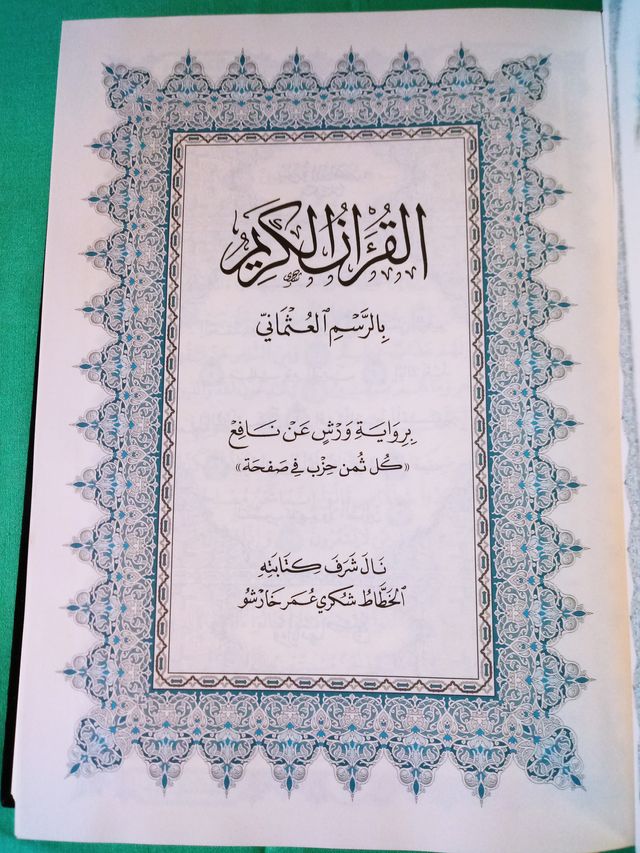 القُرْءَانُ الكَرِيم
بِالرَّسْمِ العُثْمَانِيّ
بِرِوَايَةِ وَرْشٍ عَنْ نَافِعْ
«كُل ثُمن حِزْب فِي صَفحَة»
نَالَ شَرَفَ كِتَابَتِهِ
الخَطَّاطُ شُكْرِي عُمَر خَارْشُو